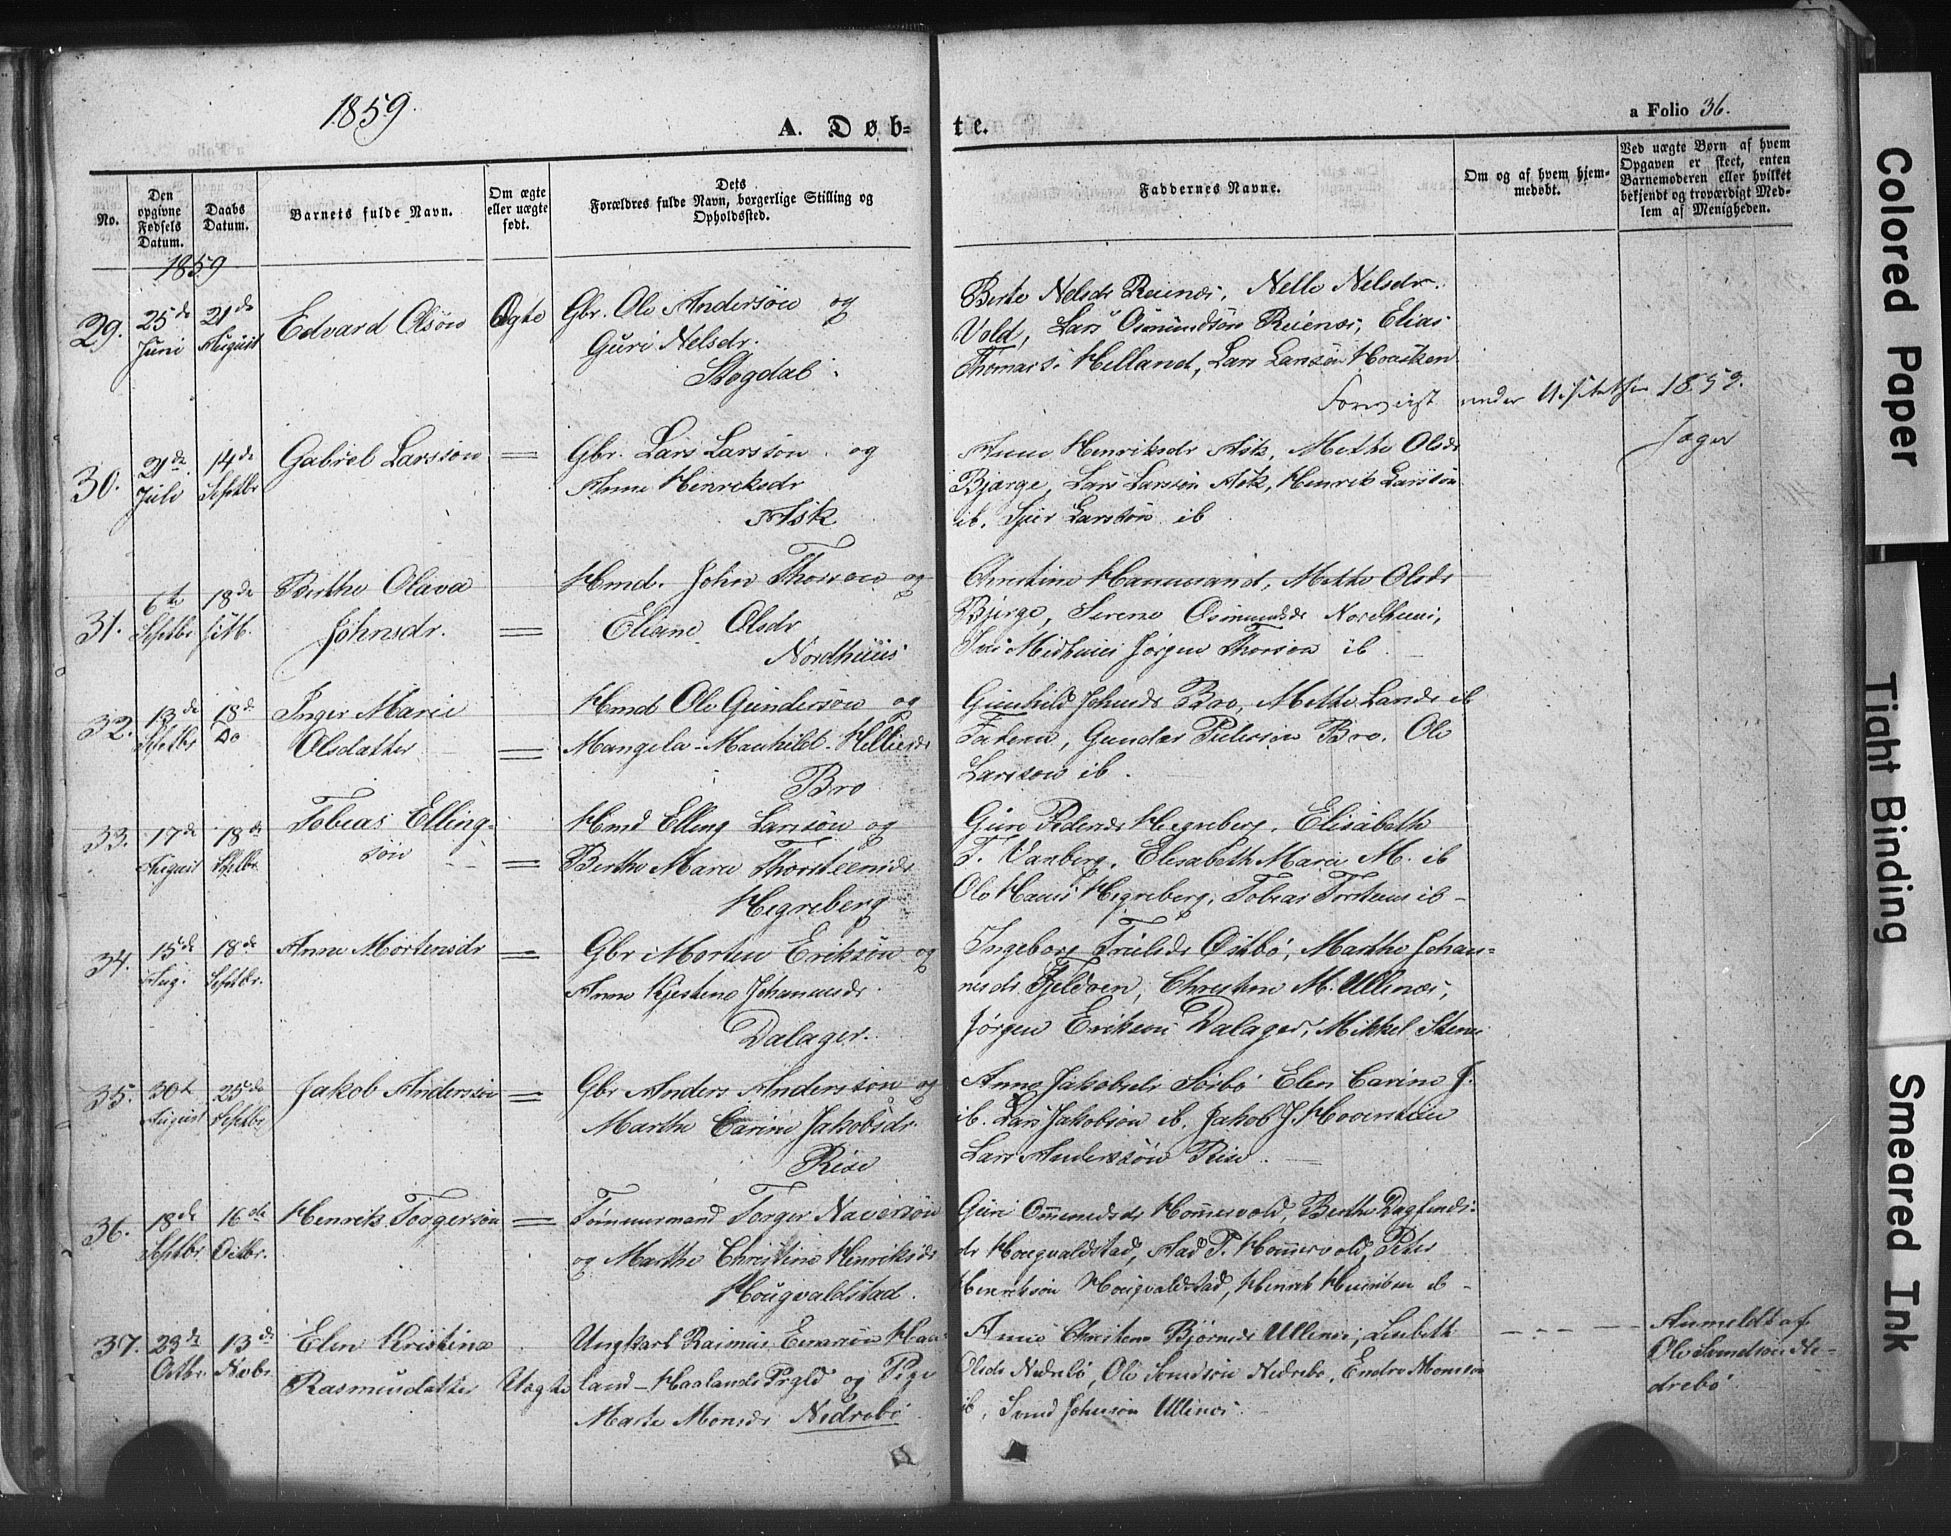 1859.
A. Døb-
te.
a Folio 36.
No.
Den opgivne Fødsels Datum.
Daabs Datum.
Barnets fulde Navn.
Om ægte eller uægte født.
Dets Forældres fulde Navn, borgerlige Stilling og Opholdssted.
Faddernes Navne.
Om og af hvem hjemmedøbt.
Ved uægte Børn af hvem Opgaven er skeet, enten Barnemoderen eller hvilket bekjendt og troværdigt Medlem af Menigheden.
1859
29.
25de Juni
21de August
Edvard Olsøn
Ægte
Gbr. Ole Andersøn og
Guri Nelsdr.
Berte Nelsdr Reienæs, Nelle Nelsdr.
Vold, Lars Osmundsøn Reienæs, Elias
Thomas. Helland, Lars Larssøn
1859.
30.
21de Juli
14de Septbr
Gabriel Larssøn
=
Gbr. Lars Larssøn og
Anne Henriksdr
Ask
Anne Henriksdr Ask, Methe Olsdr
Bjørge, Lars Larssøn Ask, Henrik Larssøn
ib. Larssøn ib
31.
6te Septbr
18de
Berthe Olava
Johnsdr.
=
Hmd. John Thorson og
Eliene Olsdr
Nordhuus
Hammersand, Methe Olsdr
Bjørge, Serene Osmundsdr Nordhuus,
Midhuus Jørgen Thorson ib
32.
13de Septbr
18de Do
Inger Marie
Olsdatter
=
Hmd Ole Gundersøn og
Mangela-Mauhildt
Bro
Gunhild Johnsdr Bro, Methe Larsdr ib
Gunder Pedersen Bro. Ole
Larsson ib.
33.
17de August
18de Septbr
Tobias Elling-
søn
=
Hmd Elling Larssøn og
Berthe Marie Thorsteensdr
Hegreberg
Guro Pedersdr Hegreberg, Elisabeth
T. Vanberg, Elisabeth Marie M. ib
Ole Hansˢ Hegreberg, Tobias Torstens ib-
34.
15de Aug.
18de Septbr.
Anne Mortensdr
=
Gbr Morten Eriksøn og
Anne Kjestene Johannesdr.
Dalager.
Ingeborg Trulsdr Østbø, Marthe Johan-
nesdr Fjeldøen, Christine M. Ullenæs,
Jørgen Eriksen Dalager, Mikkel
35.
30te August
25de Septbr
Jakob Anderssøn
=
Gbr Anders Anderssøn og
Marthe Carine Jakobsdr.
Rise
Anna Jakobsdr Sørbø Elen Carine J.
ib. Lars Jakobsøn ib. Jakob J.
Lars Anderssøn Rise
36.
18de Septbr
16de Octbr.
Henrik Torgersøn
=
Tømmermand Torger
og Marthe Christine Henriksdr
Hougvaldstad.
Guri Ommundsdr Hommersvold, Berthe Dagfinds-
dr Hougvaldstad, P. Hommersvold, Peter
Henriksøn Hougvaldstad, Henrik Henriksen ib -
37.
23de Octbr.
13de Nobr
Elen Kristina
Rasmusdatter
Uægte
Ungkarl Rasmus Enersøn Haa-
land - Haalands Prgld og Pige
Marte Monsdr Nedrebø.
Anne Christene Bjørnsdr Ullenæs, Lisebeth
Olsdr Nedrebø, Ole Svendsøn Nedrebø, Endre Monsson
ib, Svend Johnsøn Ullenæs.
Anmeldt af
Ole Svendsøn Ne-
drebø
Colored Paper
Tight Binding
Smeared Ink